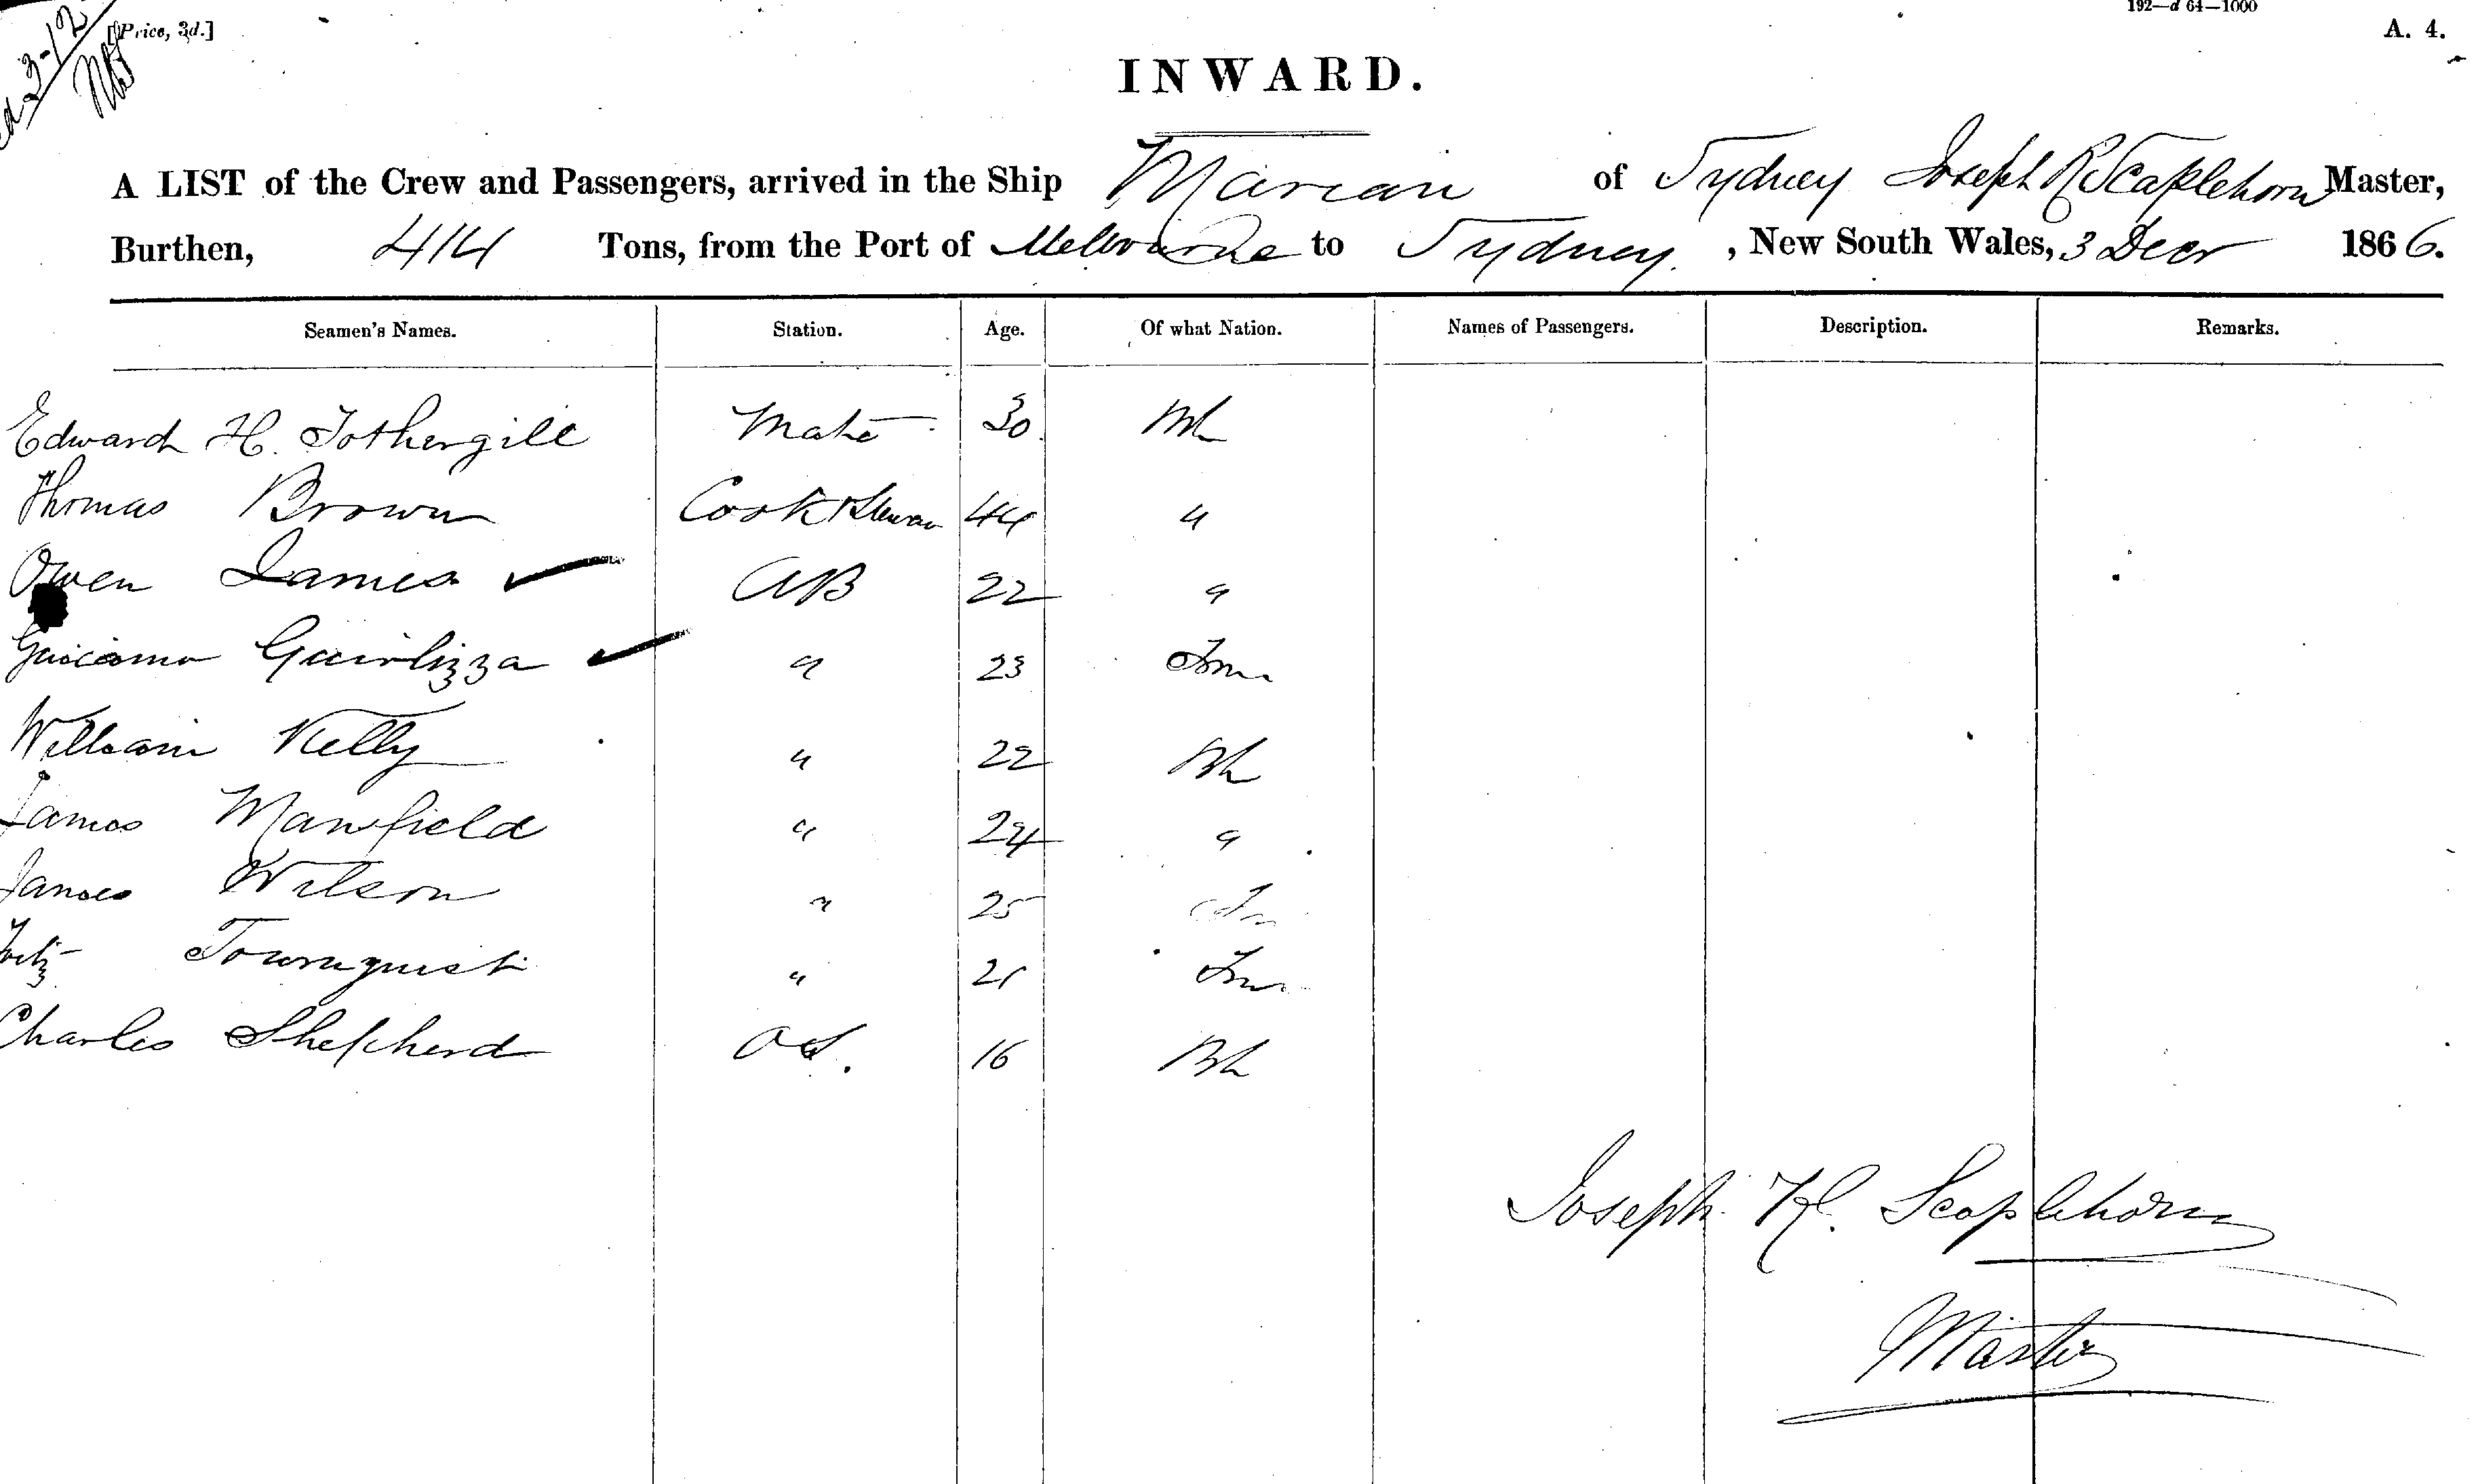 [Price, 3d.]
192—d 64—1000
A. 4.
3-12
INWARD.
A LIST of the Crew and Passengers, arrived in the Ship Marian of Sydney Joseph R Scaplehorn Master,
Burthen, 414 Tons, from the Port of Melbourne to Sydney. , New South Wales, 3 Decr 1866.
Seamen's Names. Station. Age. Of what Nation. Names of Passengers. Description. Remarks.
Edward H. Fothergill Mate 30 Bh
Thomas Brown Cook & Steward 44 "
Owen James AB 22 "
Giacomo 23
William Kelly " 22 Bh
James Manfield " 24 "
James Wilson " 25
Fritz Tournquist " 21
Charles Shepherd OS. 16 Bh
Joseph R. Scaplehorn
Master